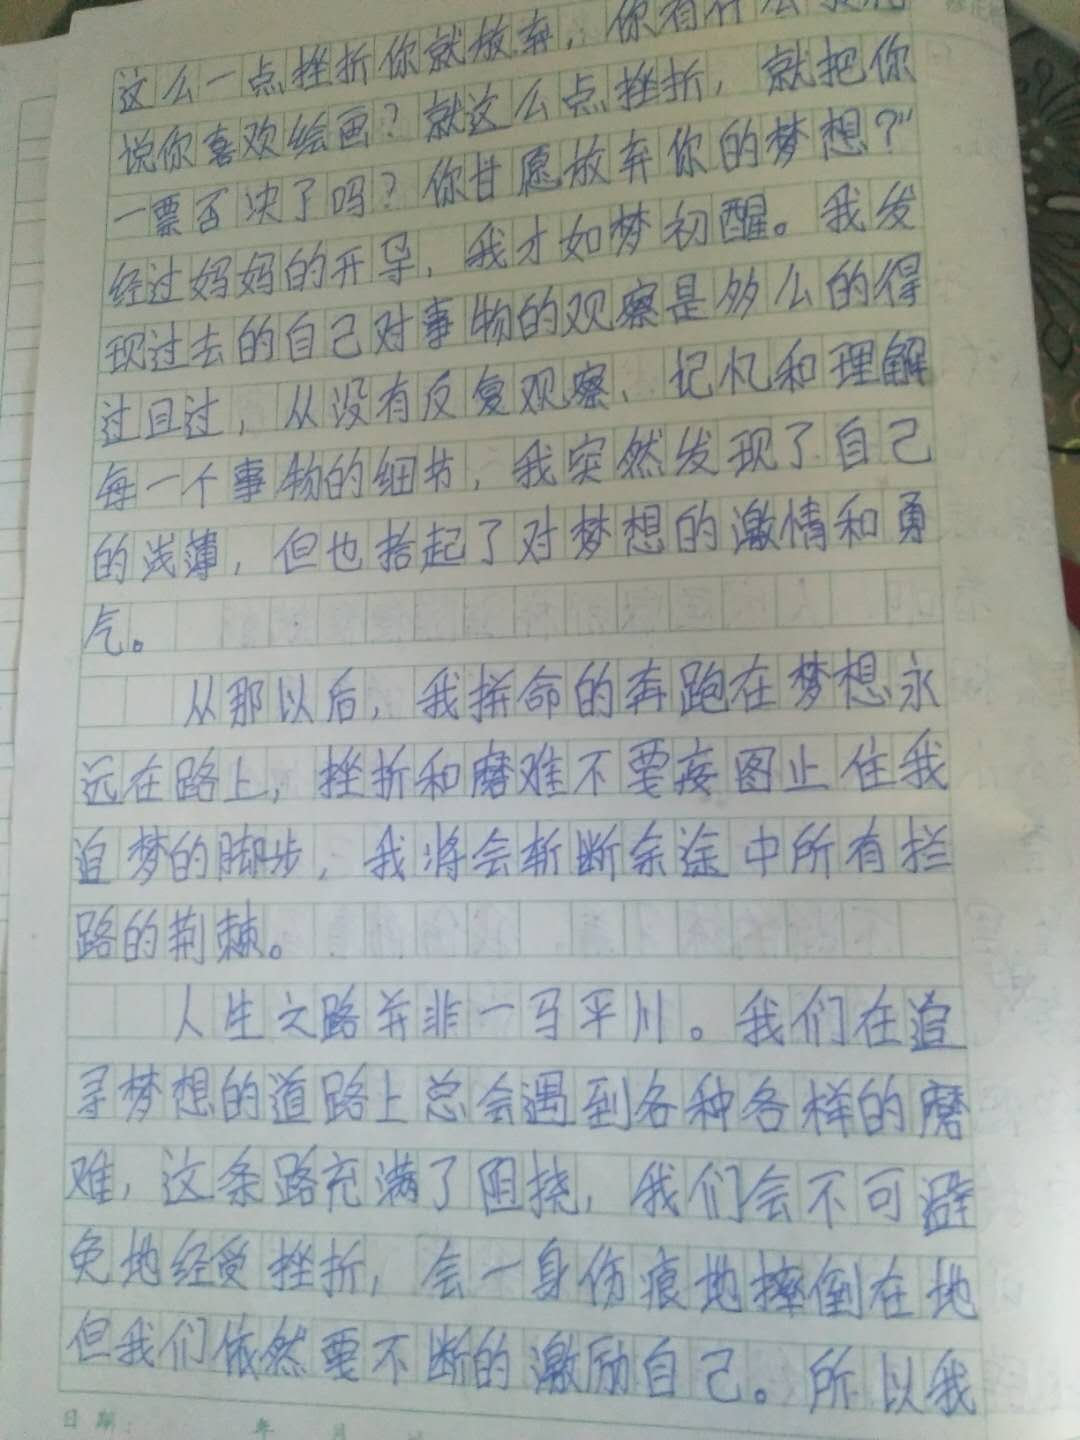 这么一点挫折你就放弃，你有什么
说你喜欢绘画？就这么点挫折，就把你
一票否决了吗？你甘愿放弃你的梦想？”
经过妈妈的开导，我才如梦初醒。我发
现过去的自己对事物的观察是多么的得
过且过，从没有反复观察、记忆和理解
每一个事物的细节，我突然发现了自己
的浅薄，但也拾起了对梦想的激情和勇
气。
从那以后，我拼命的奔跑在梦想永
远在路上，挫折和磨难不要妄图止住我
追梦的脚步，我将会斩断余途中所有拦
路的荆棘。
人生之路并非一马平川。我们在追
寻梦想的道路上总会遇到各种各样的磨
难，这条路充满了阻挠，我们会不可避
免地经受挫折，会一身伤痕地摔倒在地
但我们依然要不断的激励自己。所以我
日期： 年 月